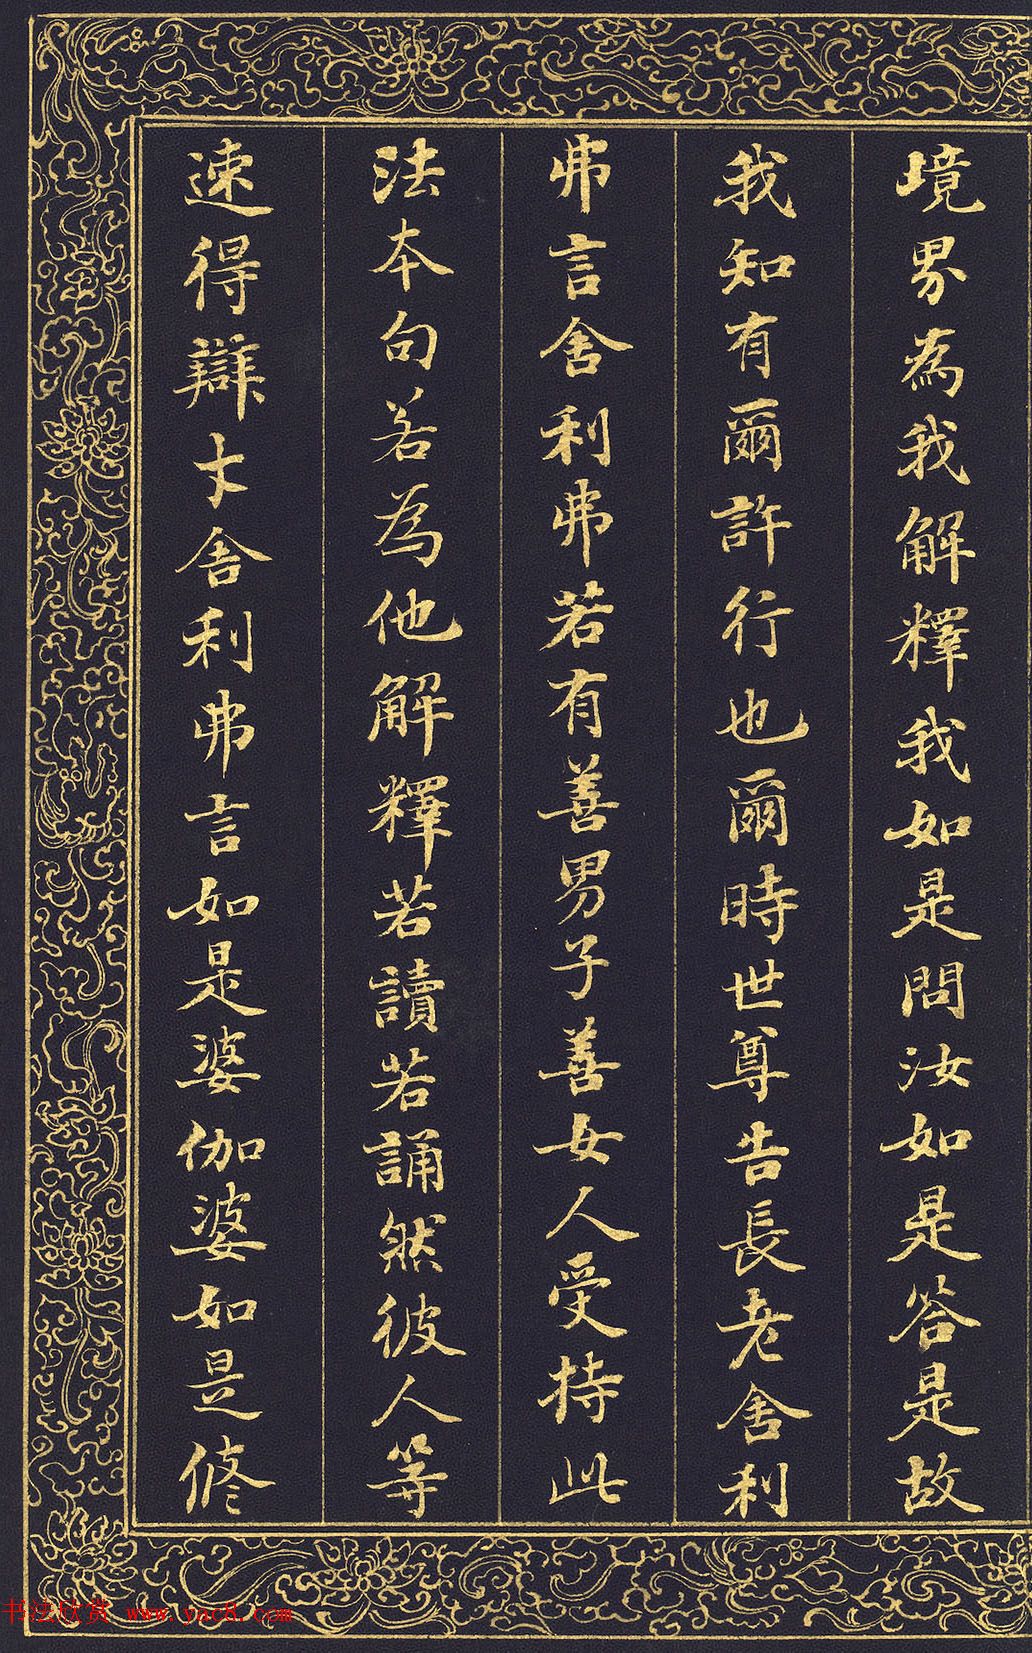 境界為我解釋我如是問汝如是答是故
我知有爾許行也爾時世尊告長老舍利
弗言舍利弗若有善男子善女人受持此
法本句若為他解釋若讀若誦然彼人等
速得辯才舍利弗言如是婆伽婆如是修
书法欣赏 www.yac8.com